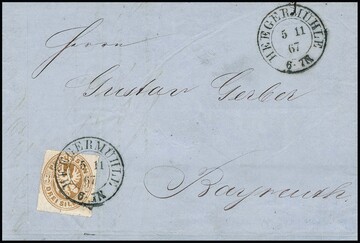 HEEGERMÜHLE
5 11
67
6-7N
Herrn
Gustav Gerber
HEEGERMÜHLE
5 11
67
6-7N
DREI SIL
Bayreuth